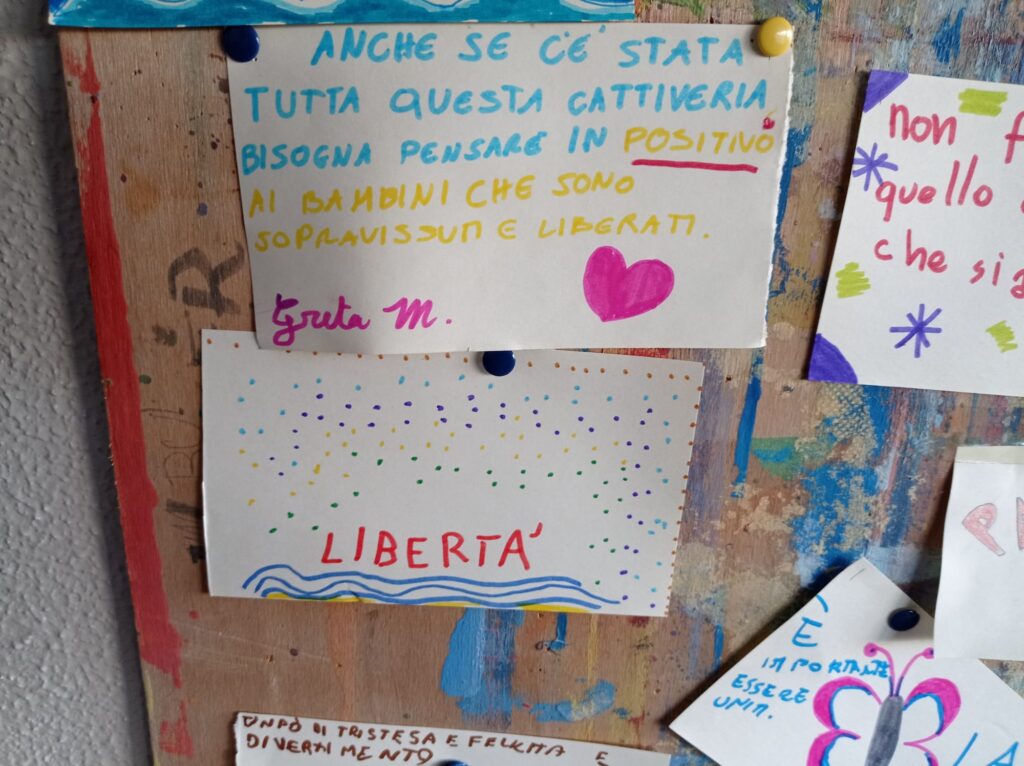 ANCHE SE C'E' STATA
TUTTA QUESTA CATTIVERIA
BISOGNA PENSARE IN POSITIVO
AI BAMBINI CHE SONO
SOPRAVISSUTI E LIBERATI.
Greta M.
LIBERTA'
non
quello
che
È
IMPORTANTE
ESSERE
UNITI.
UN PÒ DI TRISTESA E FELICITA E
DIVERTIMENTO